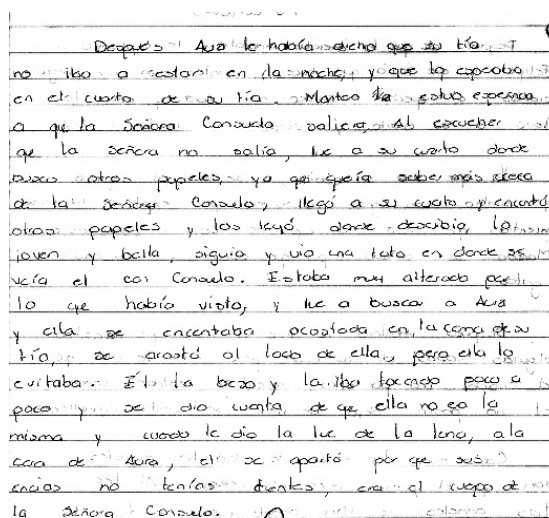 Después Aura le había dicho que su tía
no iba a estar en la noche, y que lo esperaba
en el cuarto de su tía. Monteo estuvo esperando
a que la Señora Consuelo saliera, Al escuchar
qe la señora no salía, fue a su cuarto donde
busco otros papeles, ya qe quería saber más acerca
de la Señora Consuelo, llegó a su cuato y encontró
otros papeles y los leyó donde describia, la
joven y bella, siguio y vio una foto en donde se
veía el con Consuelo. Estaba muy alterado por
lo qe había visto, y fue a buscar a Aura
y ella se encontaba acostada en la cama de su
tía, se acostó al lado de ella, pero ella lo
evitaba. El la beso y la iba tocando poco a
poco y se dio cuenta de qe ella no ea la
misma y cuado le dio la luz de la luna, a la
cara de Aura, el se apartó por qe sus
encías no tenías dientes, era el cuepo de
la Señora Consuelo.